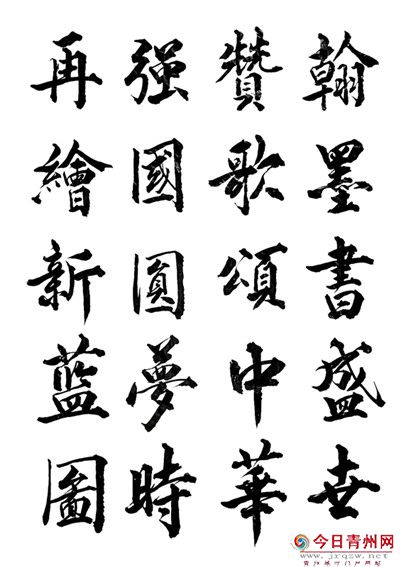 翰墨書盛世
贊歌頌中華
强國圓夢時
再繪新藍圖
今日青州网
www.jrqzw.net